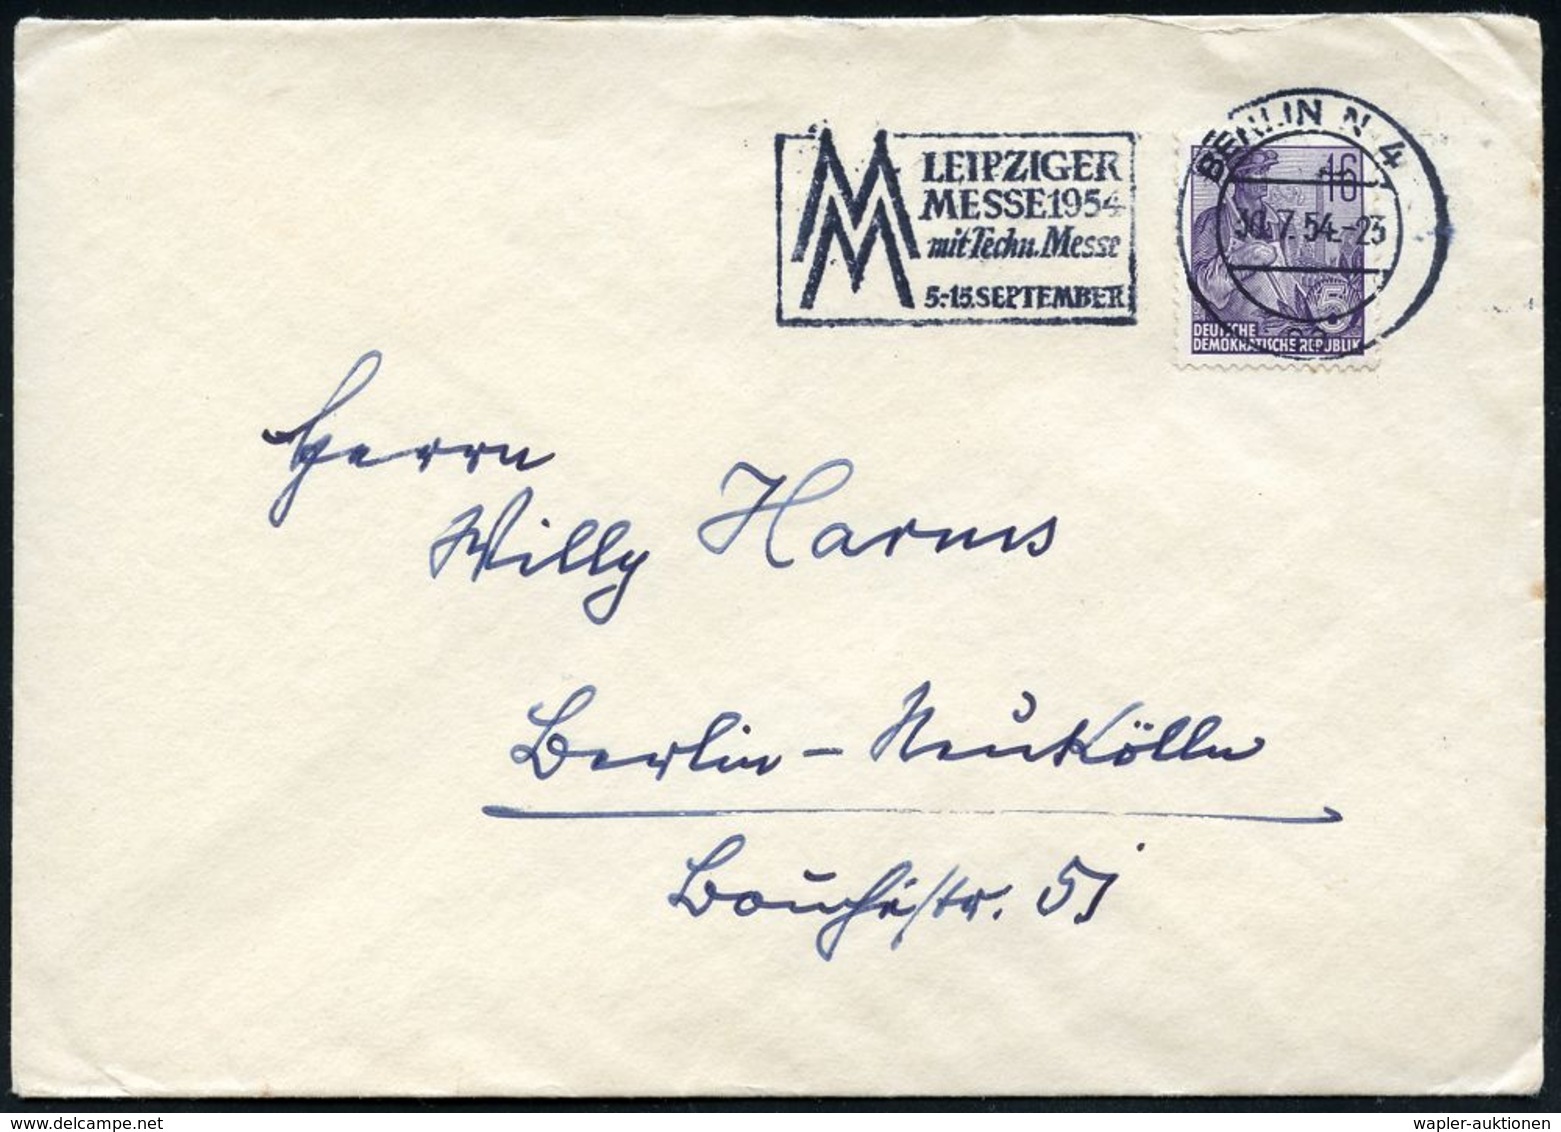 LEIPZIGER
MESSE 1954
mit Techn. Messe
5.-15. SEPTEMBER
MM
BERLIN N 4
30.7.54.-23
16
5
DEUTSCHE
DEMOKRATISCHE REPUBLIK
Herrn
Willy Harms
Berlin - Neukölln
str. 51
wapler-auktionen